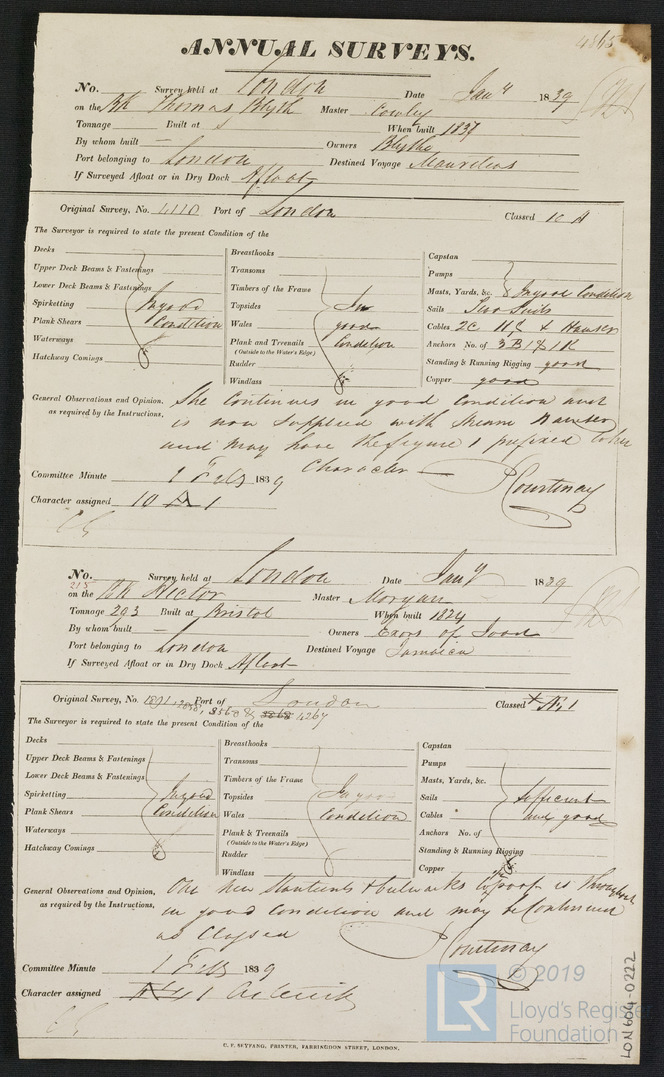 4365
ANNUAL SURVEYS.
No. Survey held at London Date Jany 1839
on the Bk Thomas Blyth Master Cowley
Tonnage Built at When built 1837
By whom built — Owners Blythe
Port belonging to London Destined Voyage Mauritius
If Surveyed Afloat or in Dry Dock Afloat
Original Survey, No. 4110 Port of London Classed 10 A
The Surveyor is required to state the present Condition of the
Decks
Upper Deck Beams & Fastenings
Lower Deck Beams & Fastenings
Spirketting In good
Plank Shears Condition
Waterways
Hatchway Comings
Breasthooks
Transoms
Timbers of the Frame
Topsides In
Wales good
Plank and Treenails Condition
(Outside to the Water's Edge)
Rudder
Windlass
Capstan
Pumps
Masts, Yards, &c. In good Condition
Sails Two Suits
Cables 2C & Hawser
Anchors No. of 3B 1S 1K
Standing & Running Rigging good
Copper good
General Observations and Opinion, She Continues in good Condition and
as required by the Instructions, is now Supplied with Stream Hawser
and may have the figure 1 prefixed to her
Character
Committee Minute 1 Feby 1839
Character assigned 10 A 1
P Courtenay
No. 215 Survey held at London Date Jany 1839
on the Bk Hector Master Morgan
Tonnage 293 Built at Bristol When built 1824
By whom built — Owners Exors of Tood
Port belonging to London Destined Voyage Jamaica
If Surveyed Afloat or in Dry Dock Afloat
Original Survey, No. 1891, Port of London Classed Æ 1
3568 & 4267
The Surveyor is required to state the present Condition of the
Decks
Upper Deck Beams & Fastenings
Lower Deck Beams & Fastenings
Spirketting In good
Plank Shears Condition
Waterways
Hatchway Comings
Breasthooks
Transoms
Timbers of the Frame
Topsides In good
Wales Condition
Plank & Treenails
(Outside to the Water's Edge)
Rudder
Windlass
Capstan
Pumps
Masts, Yards, &c.
Sails Sufficient
Cables and good
Anchors No. of
Standing & Running Rigging
Copper
General Observations and Opinion, One New Stantients & bulwarks is throughout
as required by the Instructions, in good Condition and may be Continued
as Classed
P Courtenay
Committee Minute 1 Feby 1839
Character assigned Æ 1 Asterisk
LR © 2019
Lloyd's Register
Foundation
LON604-0222
C. F. SEYFANG, PRINTER, FARRINGDON STREET, LONDON.